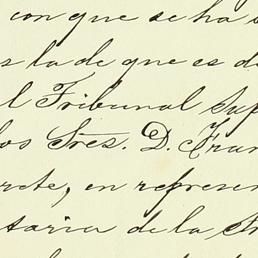 con que se ha s
s la de que es de
l Tribunal Sup
los Sres. D. Fran
rete, en represen
taria de la S